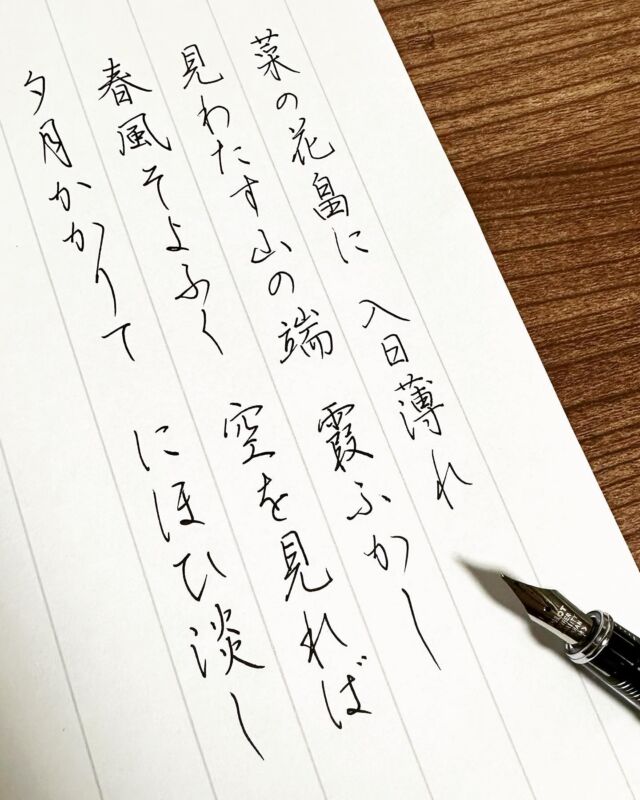 菜の花畠に 入日薄れ
見わたす山の端 霞ふかし
春風そよふく 空を見れば
夕月かかりて にほひ淡し
PILOT